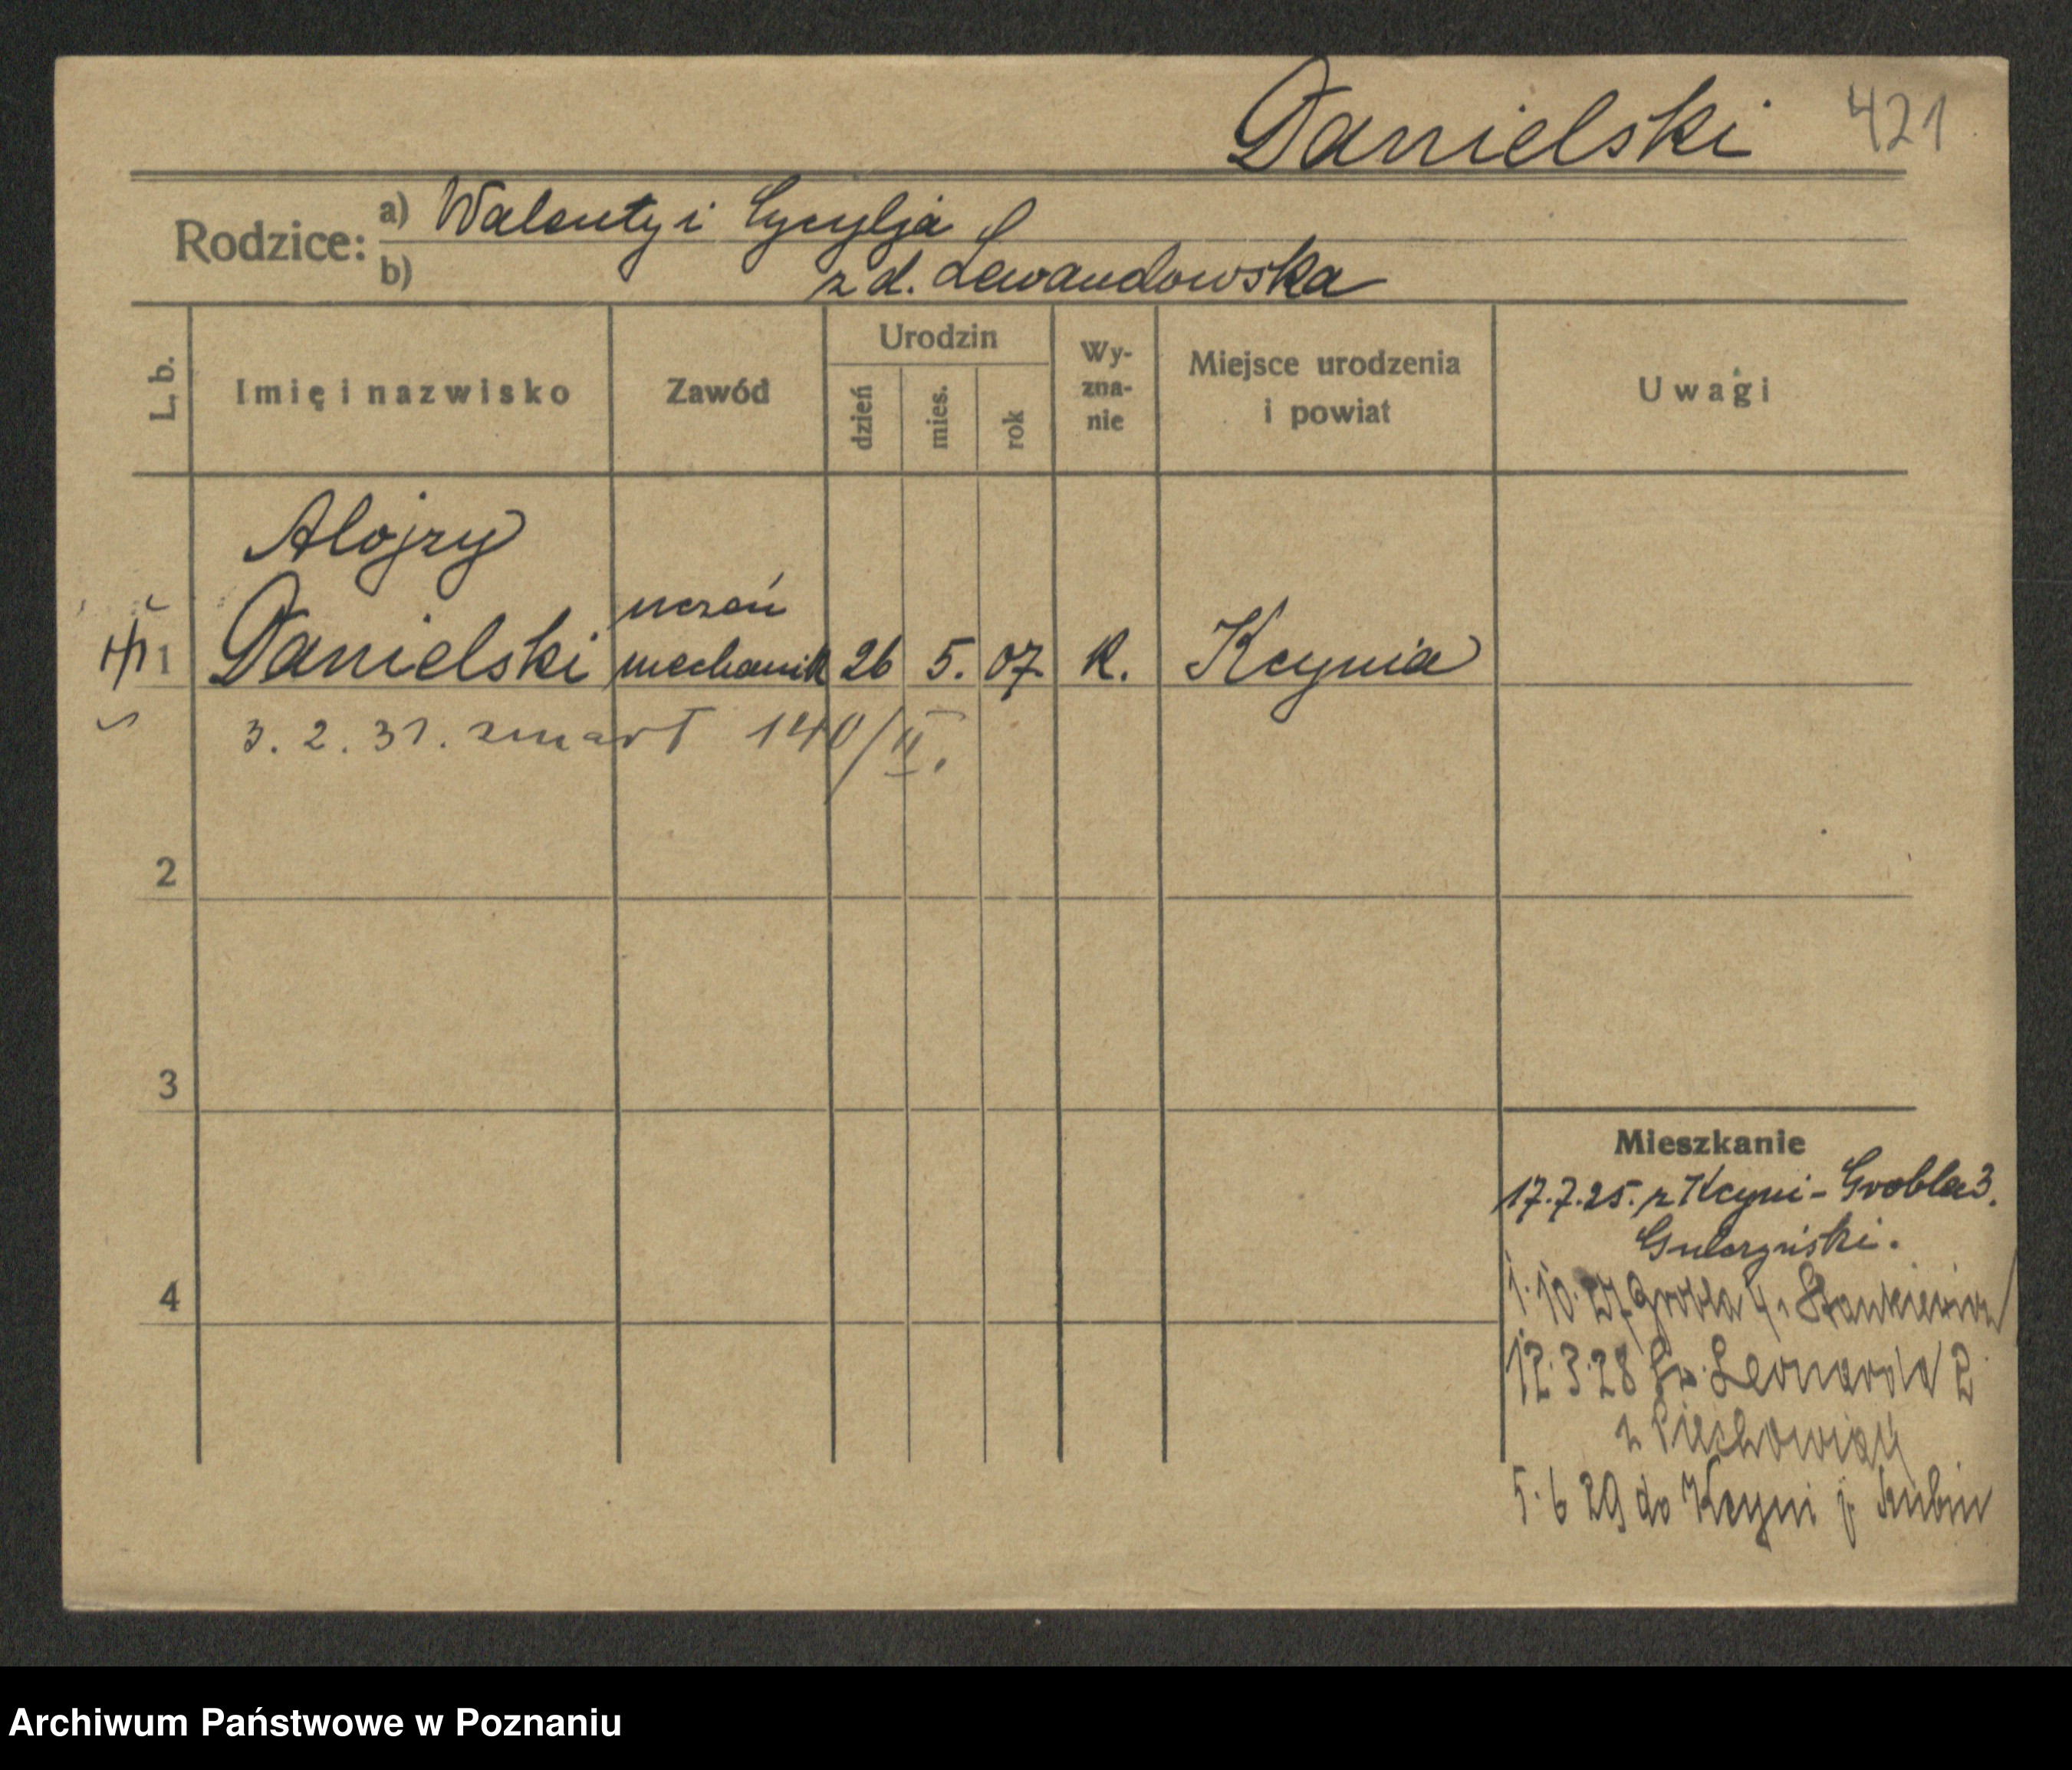 Danielski 421
Rodzice: a) Walenty i Cycylja
b) z d. Lewandowska
L. b.
Imię i nazwisko
Zawód
Urodzin
dzień
mies.
rok
Wy-
zna-
nie
Miejsce urodzenia
i powiat
Uwagi
Alojzy
uczeń
1 Danielski mechanik 26 5. 07 k. Kcynia
3. 2. 31. zmarł 140/II.
2
3
4
Mieszkanie
17.7.25. z Kcyni - Grobla 3.
1.10.27 Grobla 4 Stankiewicz
12.3.28 Św. Leonarda 2
z Piechowiak
5.6 29 do Kcyni p. Szubin
Archiwum Państwowe w Poznaniu